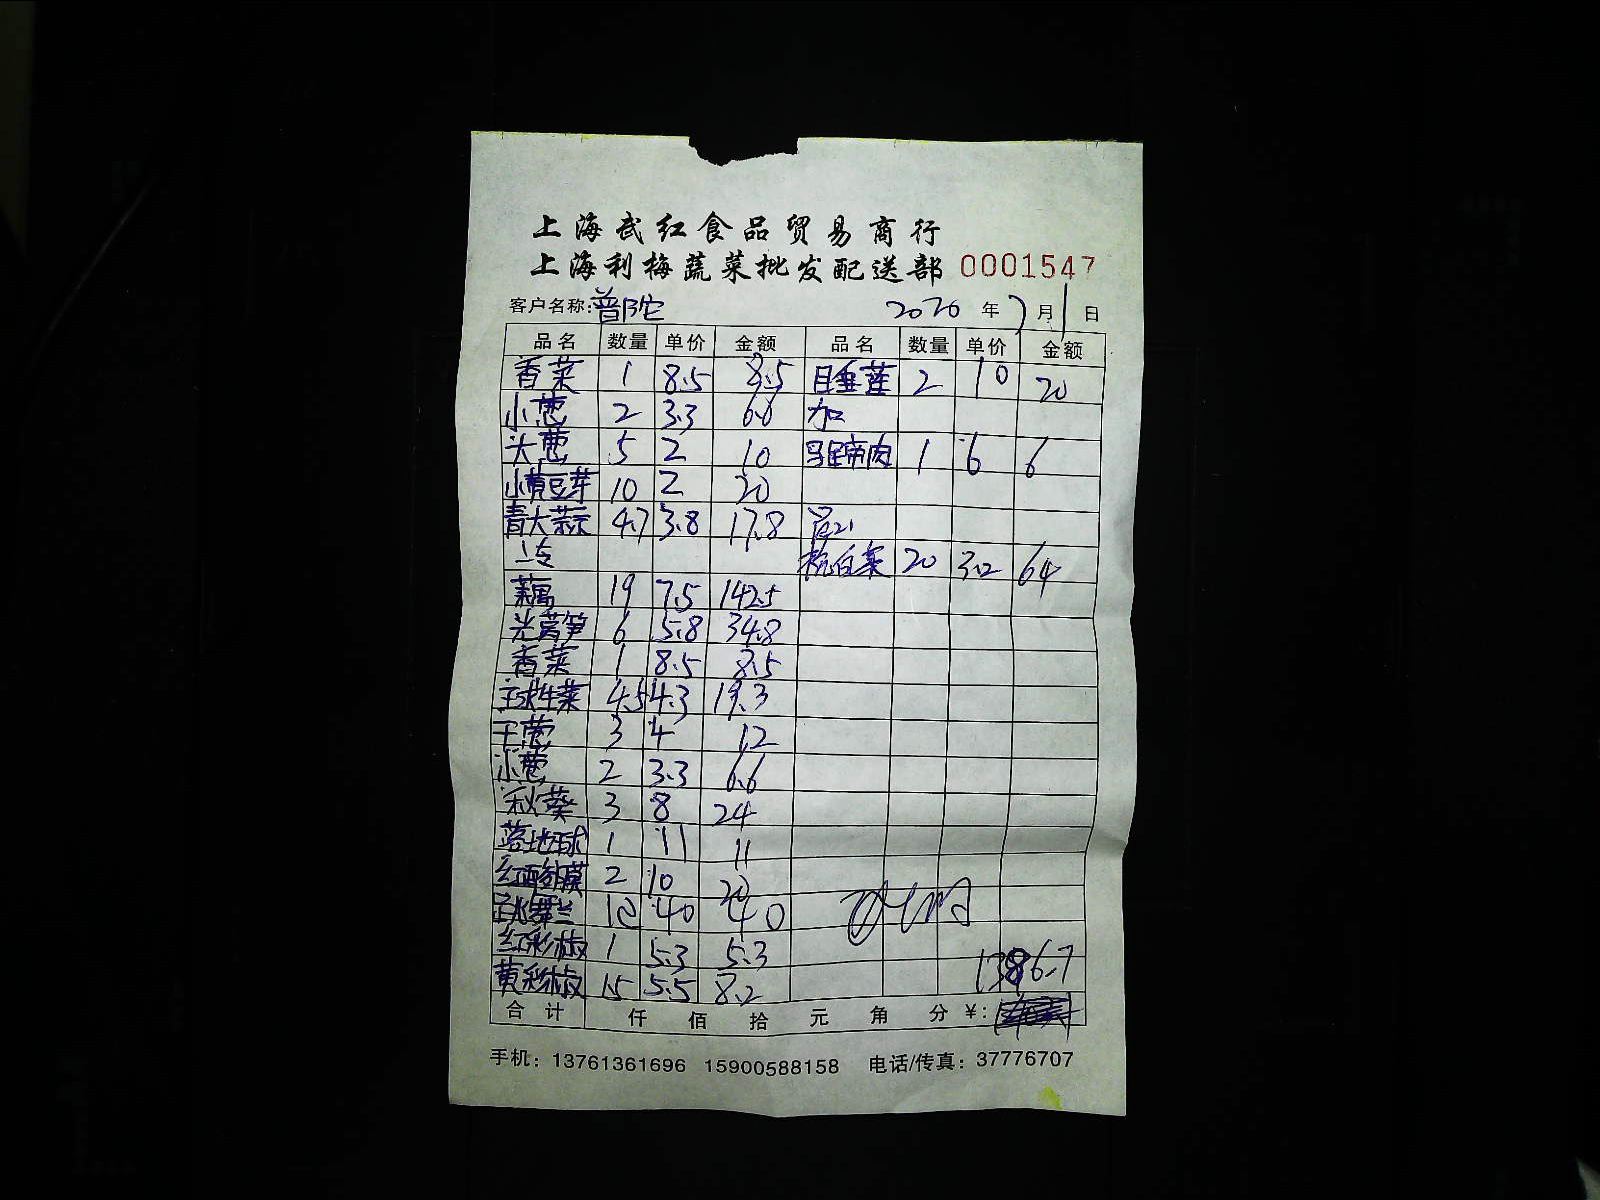 上海武红食品贸易商行
上海利梅蔬菜批发配送部 0001547
客户名称:普陀 2020 年 7 月 1 日
品名 数量 单价 金额 品名 数量 单价 金额
香菜 1 8.5 8.5 目垂莲 2 10 20
小葱 2 3.3 6.6 加
大葱 5 2 10 马蹄肉 1 6 6
小黄豆芽 10 2 20
青大蒜 4.7 3.8 17.8
杭白菜 20 3.2 64
藕 19 7.5 142.5
光莴笋 6 5.8 34.8
香菜 1 8.5 8.5
球生菜 4.5 4.3 19.3
干葱 3 4 12
小葱 2 3.3 6.6
秋葵 3 8 24
落地球 1 11 11
红西外膜 2 10 20
跳舞兰 10 40 40
红彩椒 1 5.3 5.3
黄彩椒 1.5 5.5 8.2
1386.7
合计 仟 佰 拾 元 角 分 ¥:
手机：13761361696 15900588158 电话/传真：37776707